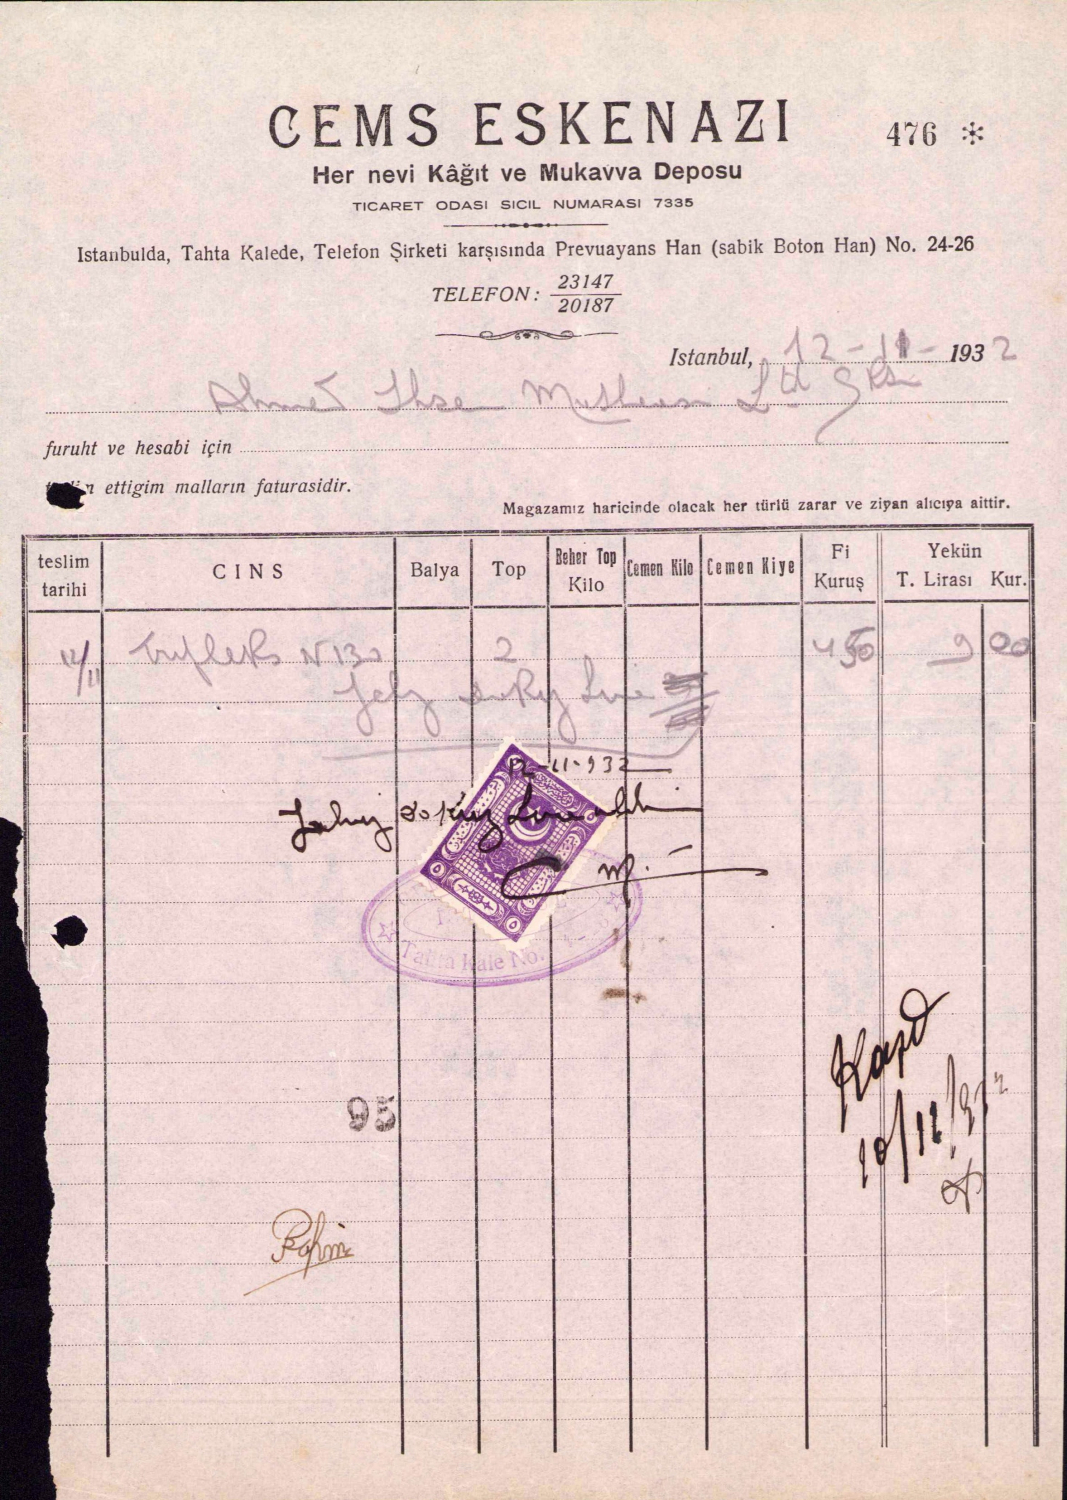 CEMS ESKENAZI
476 *
Her nevi Kâğıt ve Mukavva Deposu
TICARET ODASI SICIL NUMARASI 7335
Istanbulda, Tahta Kalede, Telefon Şirketi karşısında Prevuayans Han (sabik Boton Han) No. 24-26
TELEFON: 23147
20187
Istanbul, 12-11-1932
Ahmet Ihsan
furuht ve hesabi için
ettigim malların faturasidir.
Magazamız haricinde olacak her türlü zarar ve ziyan alıcıya aittir.
teslim tarihi CINS Balya Top Beher Top Kilo Cemen Kilo Cemen Kiye Fi Kuruş Yekün T. Lirası Kur.
12/11 N 130 2 450 9 00
Yalnız dokuz Lira
12-11-932
Yalnız dokuz Lira aldım
Tahta Kale No.
Kaşe
10/12/932
95